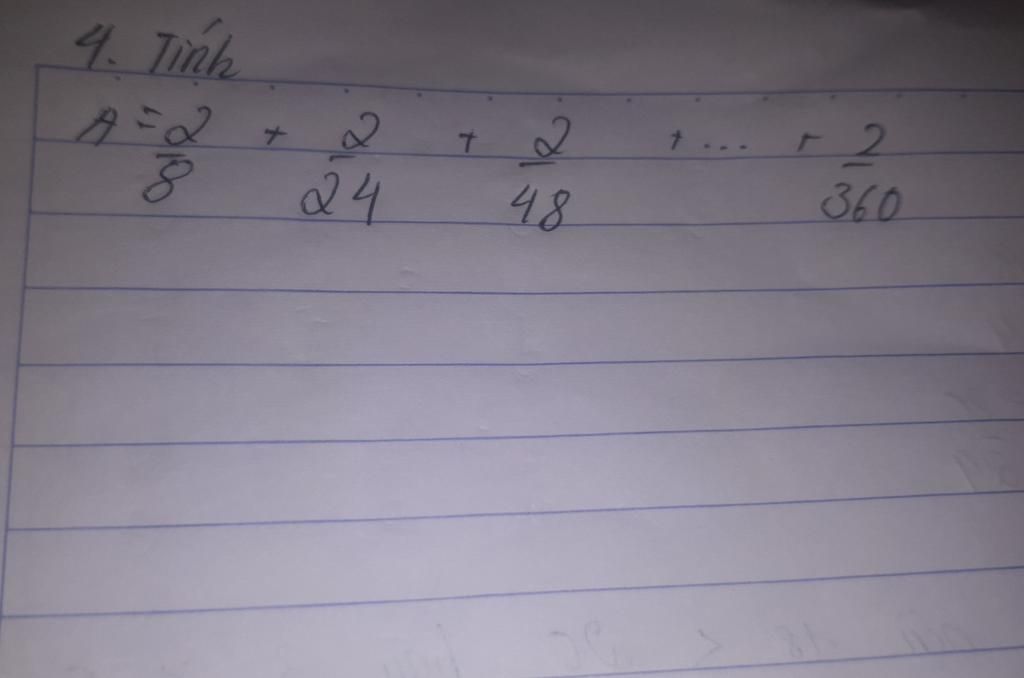 4. Tính
A = 2/8 + 2/24 + 2/48 + ... + 2/360